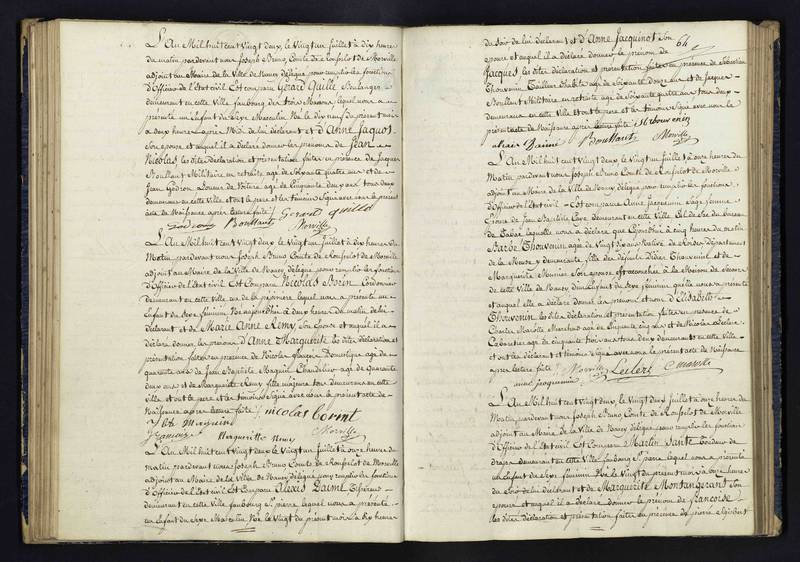 L'An Mil huit cent Vingt deux, le Vingt un Juillet à dix heures
du matin pardevant nous Joseph Bruno Comte de Ronfolot de Morville
adjoint au Maire de la Ville de Nancy délégué pour remplir les fonctions
d'Officier de l'Etat civil Est comparu Gérard Quille Boulanger
demeurant en cette Ville faubourg des trois Maisons lequel nous a
présenté un Enfant du Sexe Masculin Né le dix neuf du présent mois
à deux heures après Midi de lui déclarant et d'Anne Jaquot
Son épouse et auquel il a déclaré donner les prénoms de Jean
Nicolas, les dites déclaration et présentation faites en présence de Jacques
Boullart Militaire en retraite agé de Soixante quatre ans et de
Jean Godron Loueur de Voiture agé de Cinquante deux ans tous deux
demeurans en cette Ville et ont le pere et les témoins Signé avec nous le présent
acte de Naissance après lecture faite / Gerard quille
Boullart Morville
L'An Mil huit cent Vingt deux le Vingt un Juillet à dix heures du
Matin pardevant nous Joseph Bruno Comte de Ronfolot de Morville
adjoint au Maire de la Ville de Nancy délégué pour remplir les fonctions
d'Officier de l'Etat civil Est Comparu Nicolas Borin Cordonnier
Demeurant en cette Ville rue de la pépiniere lequel nous a présenté un
Enfant du Sexe féminin Né aujourd'hui à deux heures du matin de lui
déclarant et de Marie Anne Remy Son épouse et auquel il a
déclaré donner les prénoms d'Anne Marguerite les dites déclaration et
présentation faites en présence de Nicolas Domestique agé de
quarante ans de Jean Baptiste Magnien agé de Quarante
deux ans et de Marguerite Remy fille majeure tous demeurans en cette
Ville et ont le pere et les témoins Signé avec nous le présent acte de
Naissance après lecture faite / nicolas
Marguerite Morville
L'An Mil huit cent Vingt deux le Vingt un Juillet à onze heures du
matin pardevant nous Joseph Bruno Comte de Ronfolot de Morville
adjoint au Maire de la Ville de Nancy délégué pour remplir les fonctions
d'Officier de l'Etat civil Est Comparu Alexis Daime
demeurant en cette Ville faubourg St pierre lequel nous a présenté
un Enfant du Sexe Masculin Né le Vingt du présent mois à Six heures
64
du Soir de lui déclarant et d'Anne Jacquinot Son
épouse et auquel il a déclaré donner le prénom de
Jacques les dites déclaration et présentation faites en présence de Sébastien
Thouvenin Tailleur d'habits agé de Soixante douze ans et de Jacques
Boullart Militaire en retraite agé de Soixante quatre ans tous deux
demeurans en cette Ville et ont le pere et les témoins Signé avec nous le
présent acte de Naissance après lecture faite
alexis Daime Boullart Morville
L'An Mil huit cent Vingt deux le Vingt un Juillet à onze heures du
Matin pardevant nous Joseph Bruno Comte de Ronfolot de Morville
adjoint au Maire de la Ville de Nancy délégué pour remplir les fonctions
d'Officier de l'Etat civil Est comparu Anne Jacquemin Sage femme
Epouse de Jean Baptiste demeurant en cette Ville Cul de Sac du bureau
de tabac laquelle nous a déclaré que à cinq heures du matin
Barbe Thouvenin agée de Vingt Six ans Native de département
de la Meuse y demeurante, fille des défunts Didier Thouvenin et de
Marguerite Meunier Son épouse Est accouchée à la Maison de Secours
de cette Ville de Nancy d'un Enfant du Sexe féminin qu'elle nous a présenté
et auquel elle a déclaré donner les prénom et nom d'Elisabeth
Thouvenin, les dites déclaration et présentation faites en présence de
Charles Marotte Marchand agé de Cinquante cinq ans et de Nicolas Leclerc
Cabaretier agé de cinquante trois ans tous deux demeurans en cette Ville
et ont les déclarant et témoins Signé avec nous le présent acte de Naissance
après lecture faite / Morville Leclerc
anne jacquemin
L'An Mil huit cent Vingt deux, le Vingt deux Juillet à onze heures du
Matin, pardevant nous Joseph Bruno Comte de Ronfolot de Morville
adjoint au Maire de la Ville de Nancy délégué pour remplir les fonctions
d'Officier de l'Etat civil Est Comparu Martin Sante Tondeur de
draps demeurant en cette Ville faubourg St pierre lequel nous a présenté
un Enfant du Sexe féminin Né le Vingt du présent mois à onze heures
du Soir de lui déclarant et de Marguerite Montangerant Son
épouse et auquel il a déclaré donner le prénom de françoise
les dites déclaration et présentation faites en présence de pierre